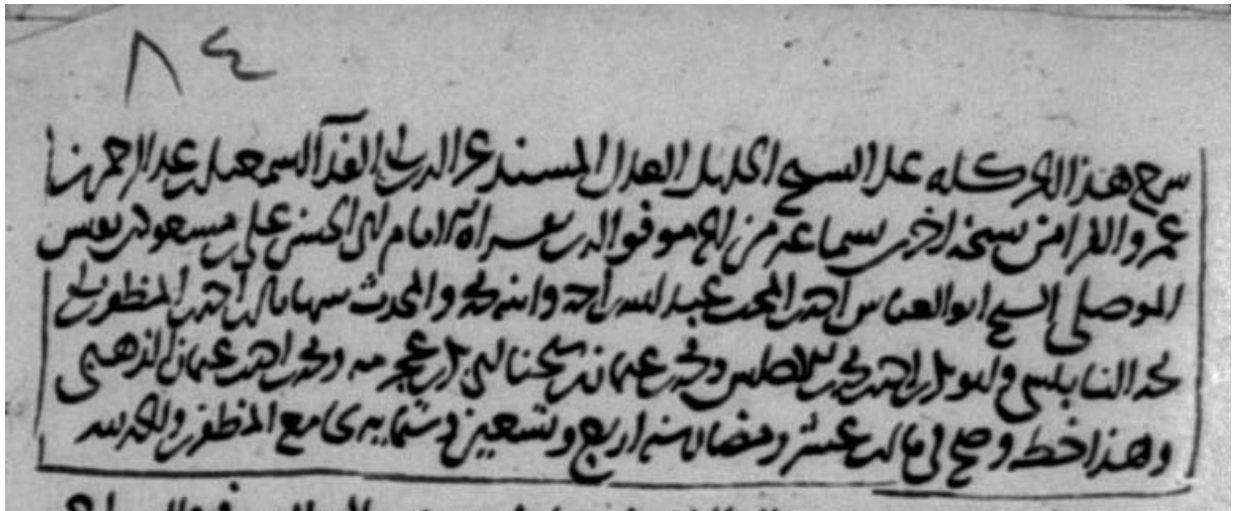 ٨٤
سمع هذا الجزء كله على الشيخ الجليل العدل المسند عز الدين ابي الفدآ اسمعيل بن عبد الرحمن بن
عمرو الفرا من نسخة اخرى بسماعه من موفق الدين بقراة الامام ابي الحسن علي بن مسعود بن نفيس
الموصلي الشيخ ابو العباس احمد بن المحب عبد الله بن احمد وابنه محمد والمحدث شهاب الدين احمد بن المظفر بن
محمد النابلسي واحمد بن محمد ومحمد بن عثمان بن ومحمد بن احمد بن عثمان بن الذهبي
وهذا خطه وصح في ثالث عشر رمضان سنة اربع وتسعين وستمايه بجامع المظفري والحمد لله